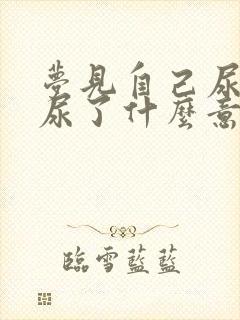 夢見自己尿
尿了什麼意
臨雪藍藍